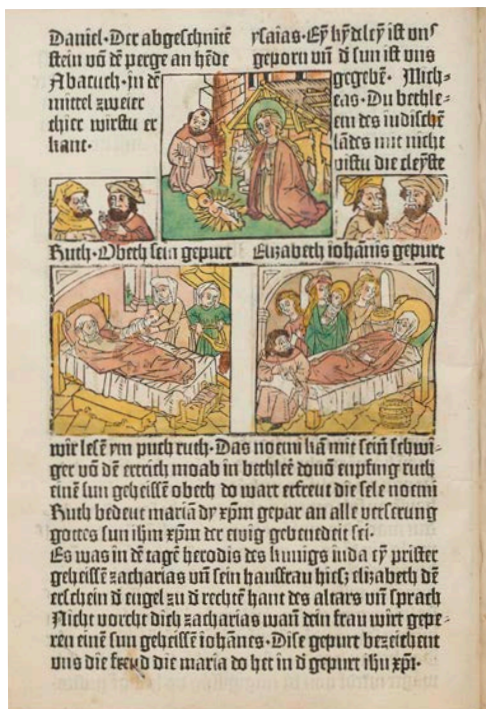 Daniel·Der abgeschnitē
stein vō dē perge an hēde
Abacuch·in dē
mittel zweier
thier wirstu er
kant·
ysaias·Eỹ kỹdleỹ ist vnſ
geporn vñ d̄ sun ist vns
gegebē· Mich⸗
eas·Du bethle⸗
em des iudischē
lādes mit nicht
pistu die cleẏste
Ruth·Obeth sein gepurt
Elizabeth iohānis gepurt
wir lesē ym puch ruth·Das noemi kā mit seiñ schwi⸗
ger vō dē ertrich moab in bethleē douō enpfing ruth
einē sun geheissē obeth do wart erfreut die sele noemi
Ruth bedeut mariā dy xp̄m gepar an alle verserung
gottes sun ihm xp̄m der ewig gebenedeit sei·
Es was in dē tagē herodis des kunigs iuda eỹ prister
geheissē zacharias vñ sein hausfrau hiesz elizabeth dē
erschein d̄ engel zu d̄ rechtē hant des altars vñ sprach
Nicht vorcht dich zacharias wañ dein frau wirt gepe⸗
ren einē sun geheissē iohānes·Dise gepurt bezeichent
vns die freud die maria do het in d̄ gepurt ihū xp̄i·